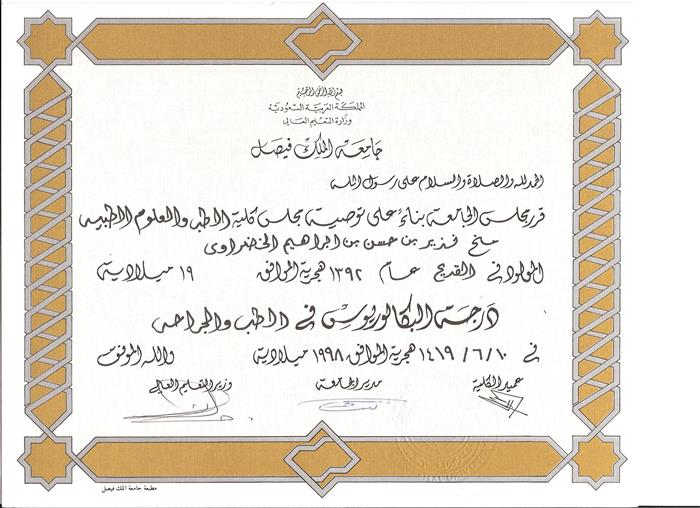 بسم الله الرحمن الرحيم
المملكة العربية السعودية
وزارة التعليم العالي
جامعة الملك فيصل
الحمد لله والصلاة والسلام على رسول الله
قرر مجلس الجامعة بناء على توصية مجلس كلية الطب والعلوم الطبية
منح بن حسن بن ابراهيم الخضراوي
المولود في القديح عام ١٣٩٢ هجرية الموافق ١٩ ميلادية
درجة البكالوريوس في الطب والجراحة
في ١٠ / ٦ / ١٤١٩ هجرية الموافق ١٩٩٨ ميلادية والله الموفق
عميد الكلية مدير الجامعة وزير التعليم العالي
مطبعة جامعة الملك فيصل